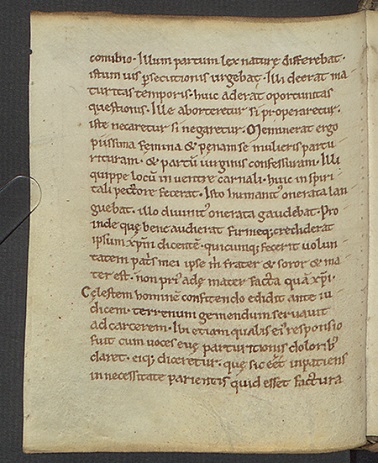 conubio. Illum partum lex naturę differebat.
istum uis psecutionis urgebat. Illi deerat ma
turitas temporis. huic aderat oportunitas
questionis. Ille aborteretur si properaretur.
iste necaretur si negaretur. Meminerat ergo
piissima femina & penam se mulieris partu
ritura. & partū uirginis confessuram. Illi
quippe locū in uentre carnali. huic in spiri
tali pectore fecerat. Isto humanit onerata lan
guebat. illo diuinit onerata gaudebat. Pro
inde quę bene audierat firmeq; crediderat
ipsum xpm dicentē. quicunq; fecerit uolun
tatem patris mei ipse m frater & soror & ma
ter est. non pri adę mater facta quā xpi.
Cęlestem hominē confitendo edidit ante iu
dicem. terrenum gemendum seruauit
ad carcerem. Ubi etiam qualis ei responsio
fuit cum uoces euę parturitionis dolorib;
claret. eiq; diceretur. quę sic eēt inpatiens
in necessitate parientis quid esset factura